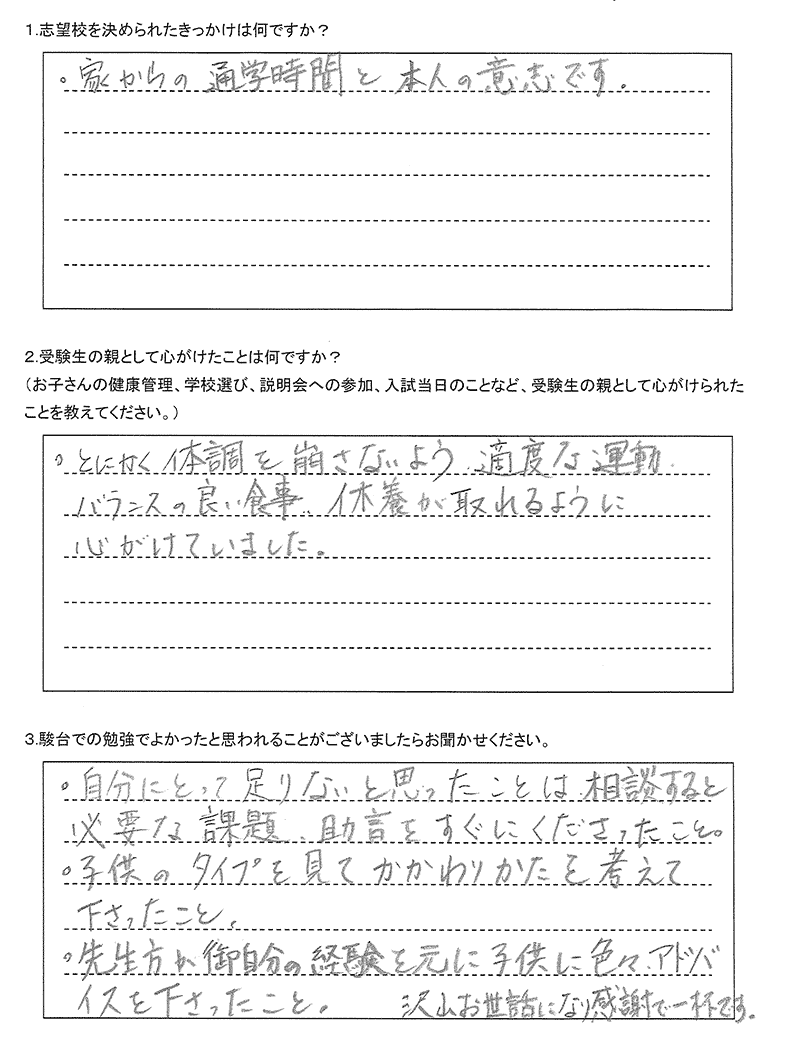 1.志望校を決められたきっかけは何ですか？
。家からの通学時間と本人の意志です。
2.受験生の親として心がけたことは何ですか？
（お子さんの健康管理、学校選び、説明会への参加、入試当日のことなど、受験生の親として心がけられた
ことを教えてください。）
。とにかく体調を崩さないよう、適度な運動、
バランスの良い食事、休養が取れるように
心がけていました。
3.駿台での勉強でよかったと思われることがございましたらお聞かせください。
。自分にとって足りないと思ったことは、相談すると
必要な課題、助言をすぐにくださったこと。
。子供のタイプを見てかかわりかたを考えて
下さったこと。
。先生方が御自分の経験を元に子供に色々、アドバ
イスを下さったこと。 沢山お世話になり感謝で一杯です。